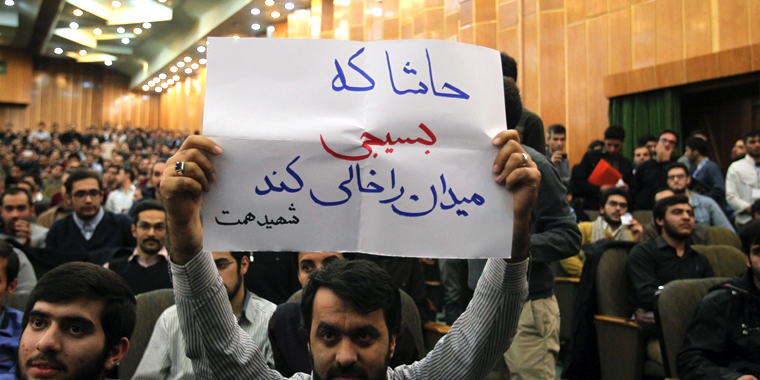 حاشا که
بسیجی
میدان را خالی کند
شهید همت